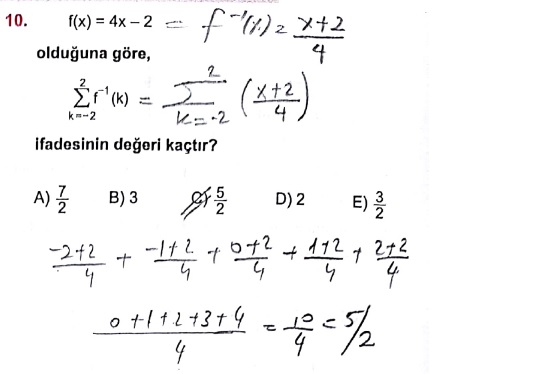 10. f(x) = 4x – 2 = f⁻¹(x) = x+2/4
olduğuna göre,
2∑k=–2 f⁻¹(k) = 2∑k=-2 (x+2/4)
ifadesinin değeri kaçtır?
A) 7/2 B) 3 C) 5/2 D) 2 E) 3/2
-2+2/4 + -1+2/4 + 0+2/4 + 1+2/4 + 2+2/4
0+1+2+3+4/4 = 10/4 = 5/2